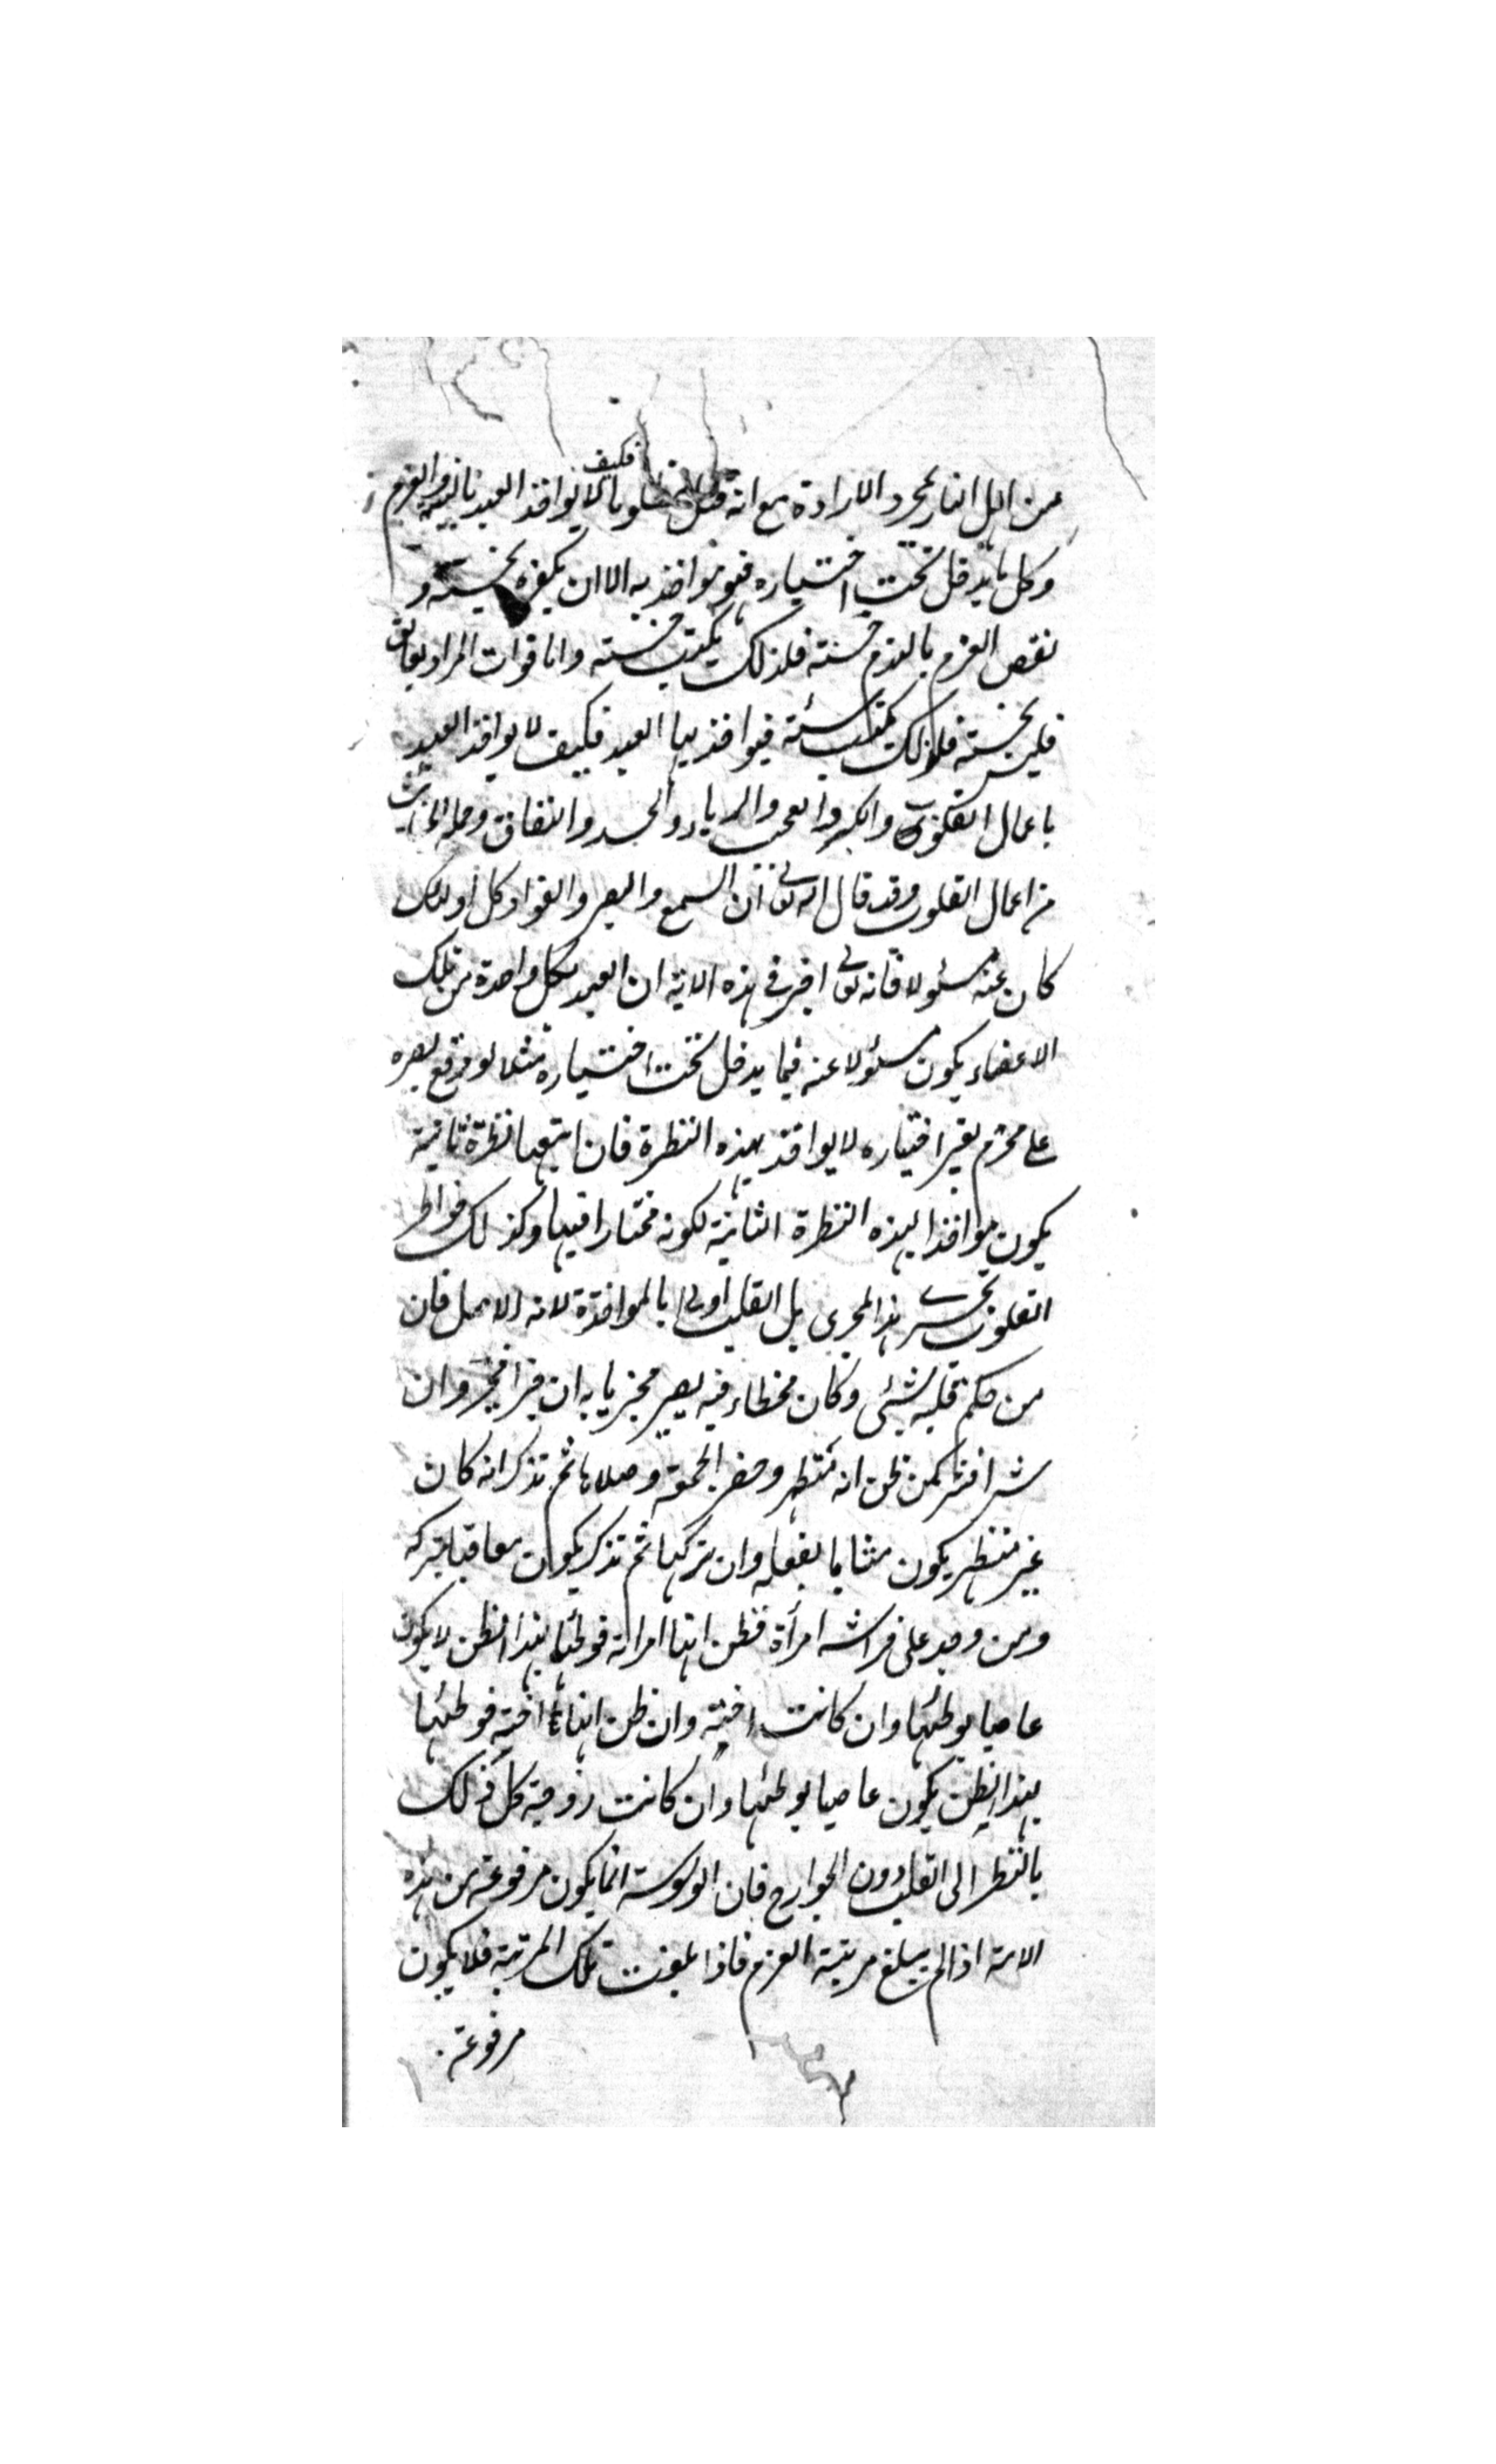 من اهل النار بمجرد الارادة مع انه قتل مظلوما فكيف لا يواخذ العبد بالنية والعزم
وكل ما يدخل تحت اختياره فهو مواخذ به الا ان يكفره بحسنة و
نقض العزم بالندم حسنة فلذلك يكتب حسنة واما فوات المراد بعائق
فليس بحسنة فلذلك يكتب سيئة فيواخذ بها العبد فكيف لا يواخذ العبد
باعمال القلوب والكبر والعجب والرياء والحسد والنفاق وجملة الخبائث
من اعمال القلوب وقد قال الله تعالى ان السمع والبصر والفواد كل اولئك
كان عنه مسئولا فانه تعالى اخبر في هذه الاية ان العبد بكل واحدة من تلك
الاعضاء يكون مسئولا عنه فيما يدخل تحت اختياره مثلا لو وقع بصره
على محرم بغير اختياره لا يواخذ بهذه النظرة فان اتبعها نظرة ثانية
يكون مواخذا بهذه النظرة الثانية لكونه مختارا فيها وكذلك خواطر
القلوب تجري هذا المجرى بل القلب اولى بالمواخذة لانه الاصل فان
من حكم قلبه بشئ وكان مخطاء فيه يصير مجزيا به ان خيرا فخير وان
شرا فشر كمن ظن انه متطهر وحضر الجمعة وصلاها ثم تذكر انه كان
غير متطهر يكون مثابا بفعله وان تركها ثم تذكر يكون معاقبا بتركه
ومن وجد على فراشه امرأة فظن انها امراته فوطئها بهذا الظن لا يكون
عاصيا بوطئها وان كانت اجنبية وان ظن انها اجنبية فوطئها
بهذا الظن يكون عاصيا بوطئها وان كانت زوجته كل ذلك
بالنظر الى القلب دون الجوارح فان الوسوسة انما يكون مرفوعة من هذه
الامة اذا لم يبلغ مرتبة العزم فاذا بلغت تلك المرتبة فلا يكون
مرفوعة